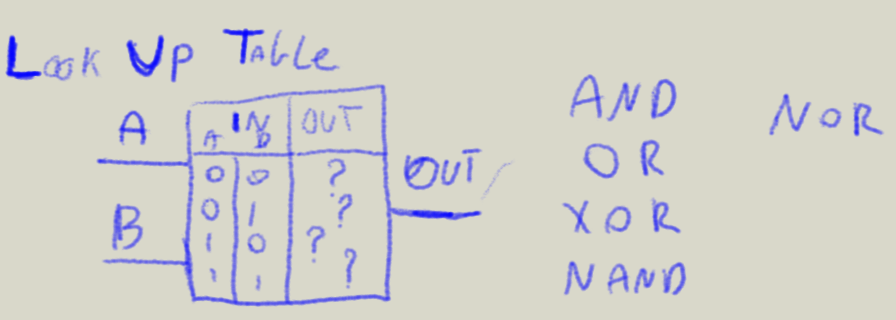 Look Up Table
A
B
IN OUT
A B
0 0 ?
0 1 ?
1 0 ?
1 1 ?
OUT
AND
OR
XOR
NAND
NOR